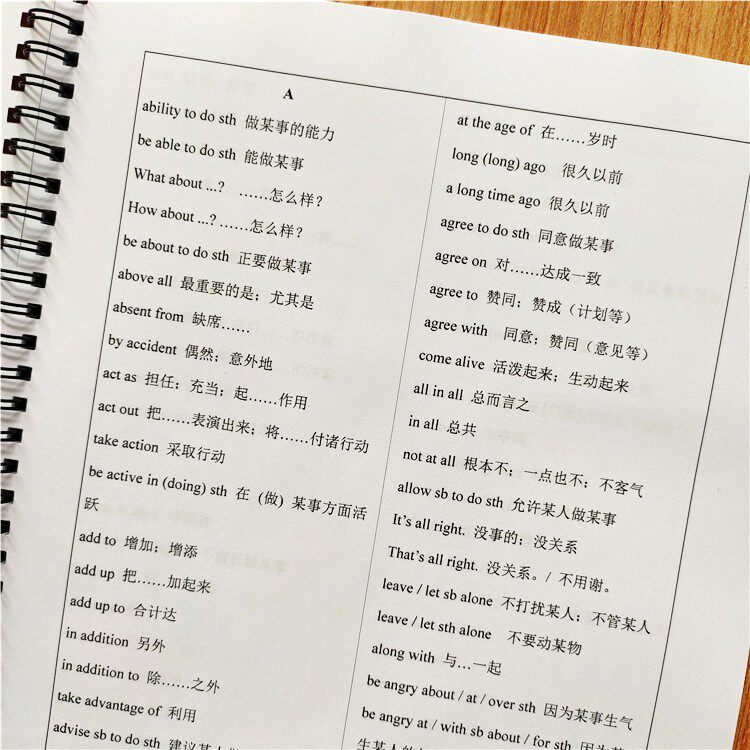 A
ability to do sth 做某事的能力
be able to do sth 能做某事
What about ...? ……怎么样?
How about ...? ……怎么样?
be about to do sth 正要做某事
above all 最重要的是；尤其是
absent from 缺席……
by accident 偶然；意外地
act as 担任；充当；起……作用
act out 把……表演出来；将……付诸行动
take action 采取行动
be active in (doing) sth 在 (做) 某事方面活
跃
add to 增加；增添
add up 把……加起来
add up to 合计达
in addition 另外
in addition to 除……之外
take advantage of 利用
advise sb to do sth 建议某人
at the age of 在……岁时
long (long) ago 很久以前
a long time ago 很久以前
agree to do sth 同意做某事
agree on 对……达成一致
agree to 赞同；赞成（计划等）
agree with 同意；赞同（意见等）
come alive 活泼起来；生动起来
all in all 总而言之
in all 总共
not at all 根本不；一点也不；不客气
allow sb to do sth 允许某人做某事
It's all right. 没事的；没关系
That's all right. 没关系。/ 不用谢。
leave / let sb alone 不打扰某人；不管某人
leave / let sth alone 不要动某物
along with 与…一起
be angry about / at / over sth 因为某事生气
be angry at / with sb about / for sth 因为
生某人的